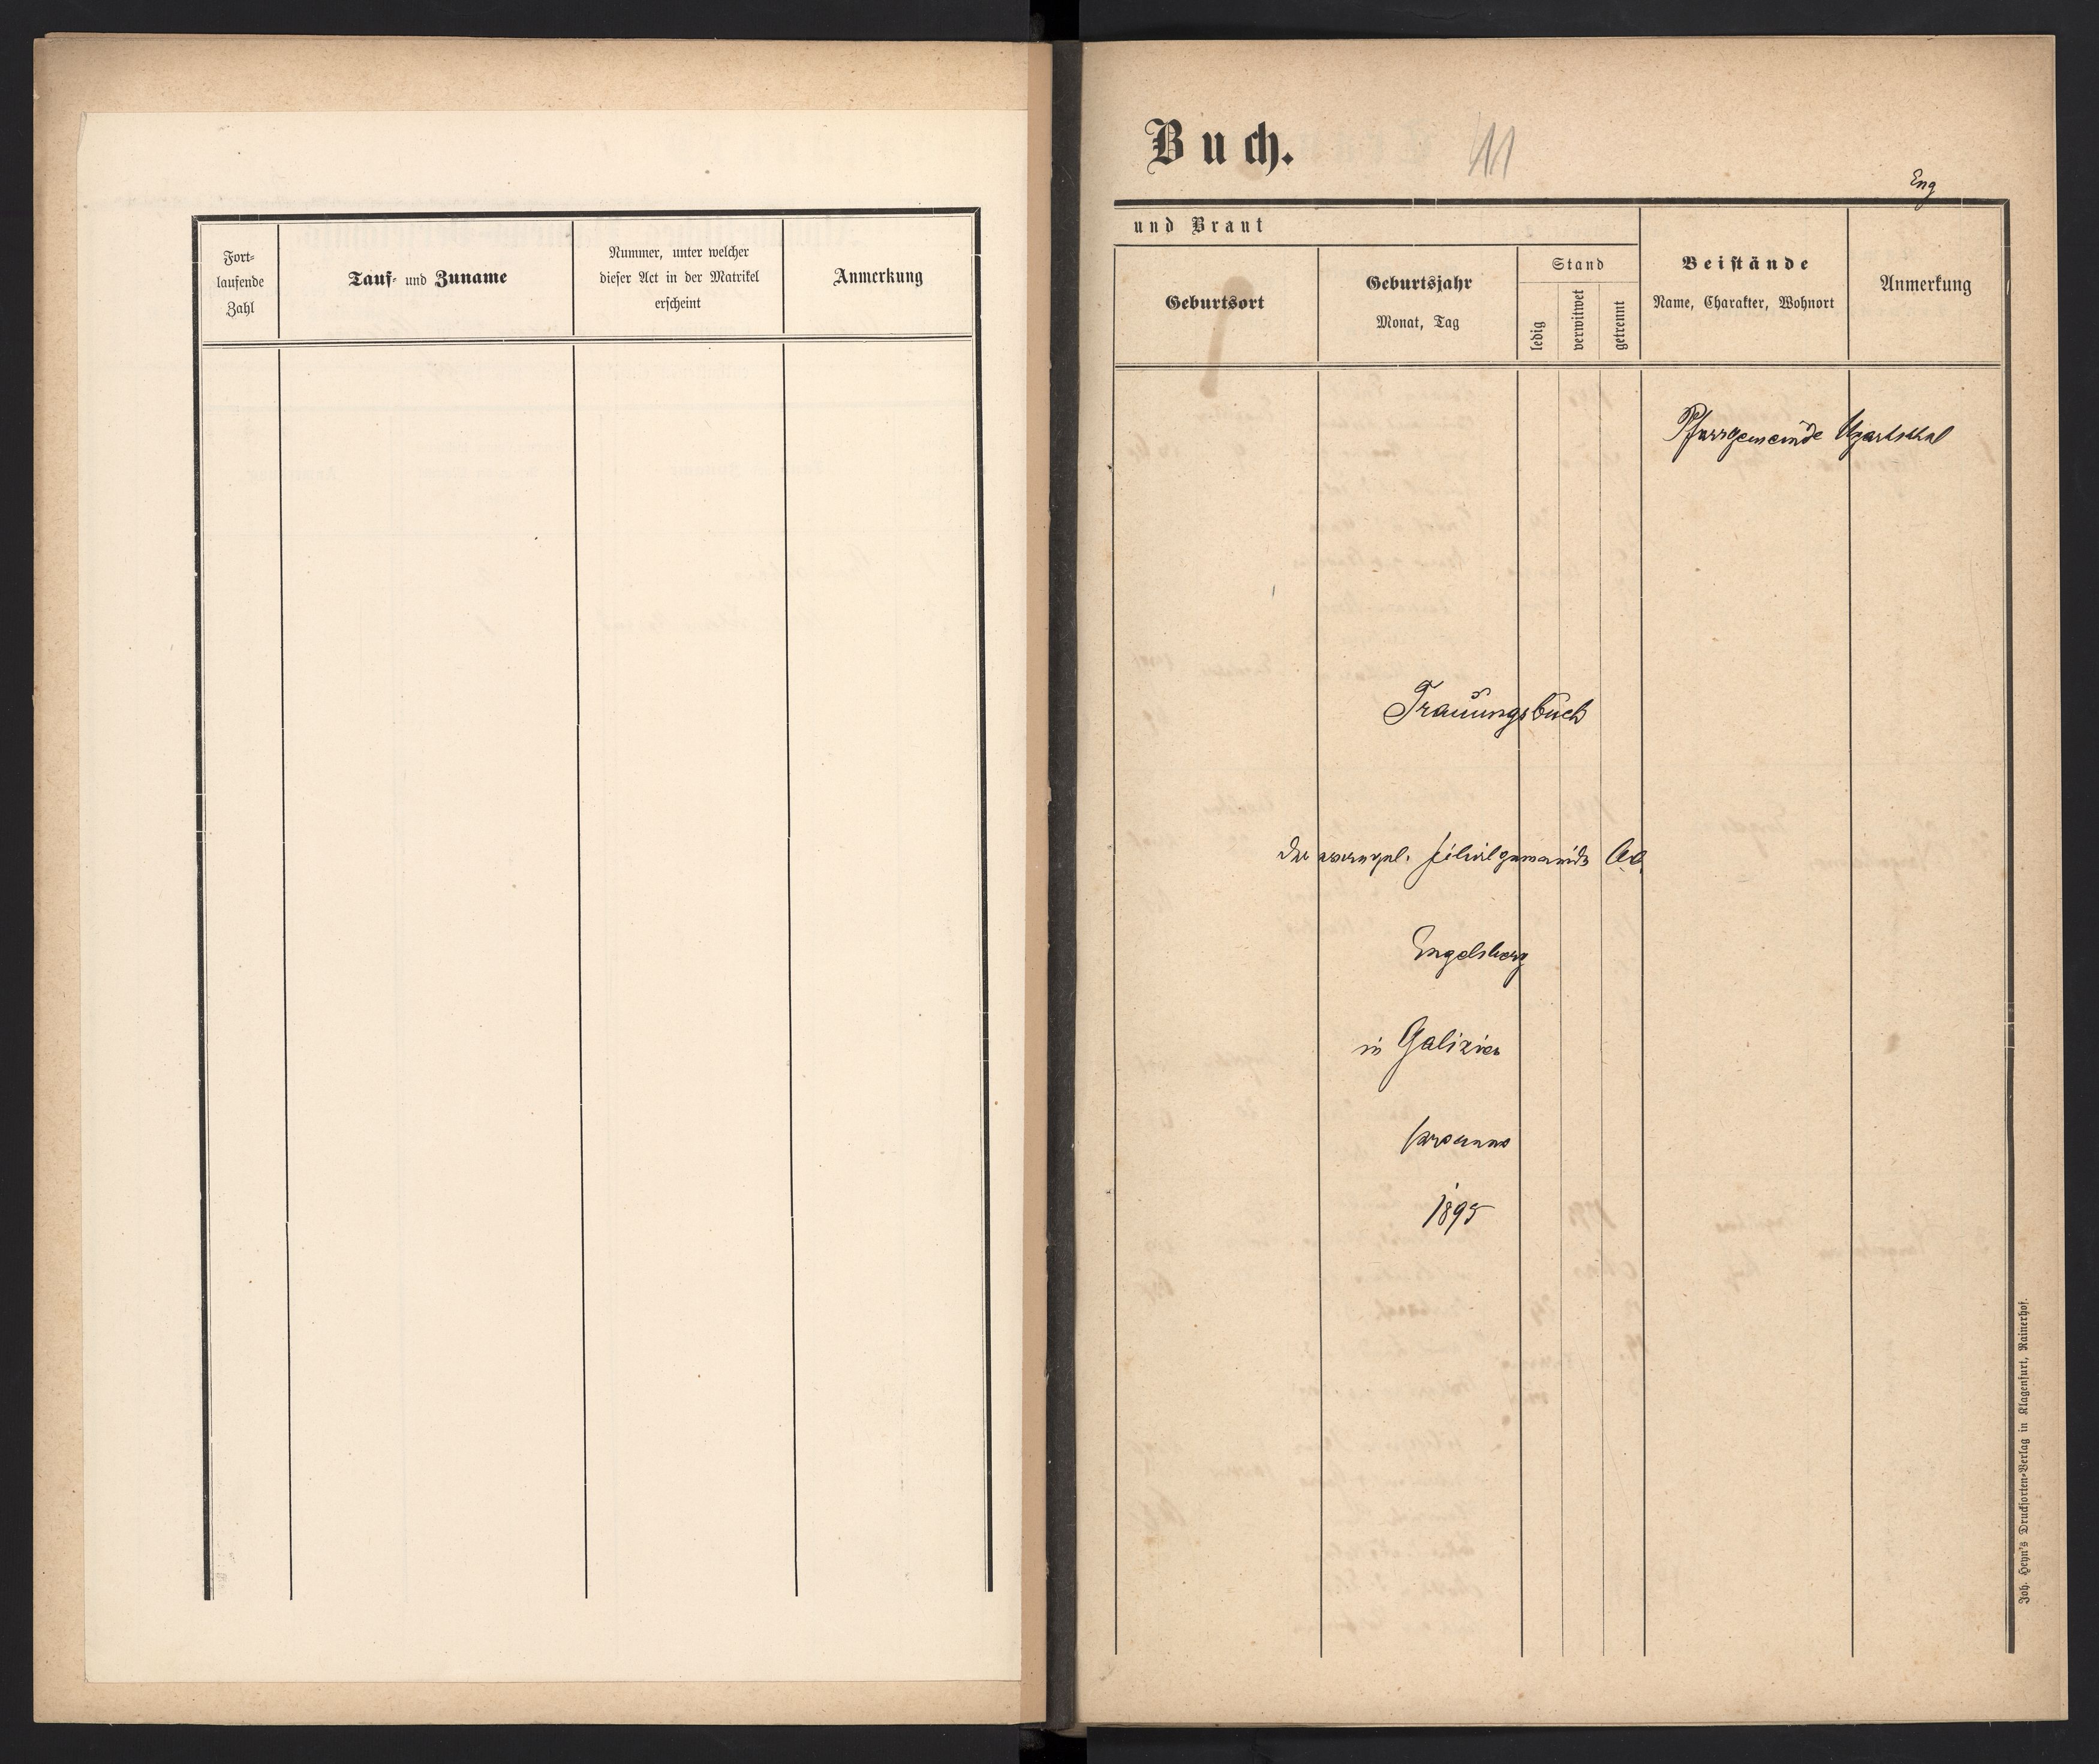 Fort-
laufende
Zahl
Tauf- und Zuname
Nummer, unter welcher
dieser Act in der Matrikel
erscheint
Anmerkung
Buch. 11
Eng
und Braut
Geburtsort
Geburtsjahr
Monat, Tag
Stand
ledig
verwitwet
getrennt
Beistände
Name, Charakter, Wohnort
Anmerkung
Pfarrgemeinde Ugartsthal
Trauungsbuch
der evangel. Filialgemeinde A.C.
Engelsberg
in Galizien
pro anno
1895
Joh. Heyn's Drucksorten-Verlag in Klagenfurt, Rainerhof.